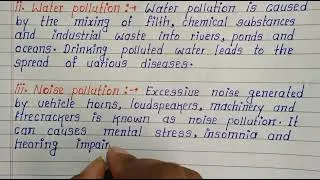 ii. Water pollution :→ Water pollution is caused
by the mixing of filth, chemical substances
and industrial waste into rivers, ponds and
oceans. Drinking polluted water leads to the
spread of various diseases.
iii. Noise pollution :→ Excessive noise generated
by vehicle horns, loudspeakers, machinery and
firecrackers is known as noise pollution. It
can causes mental stress, insomnia and
hearing impair